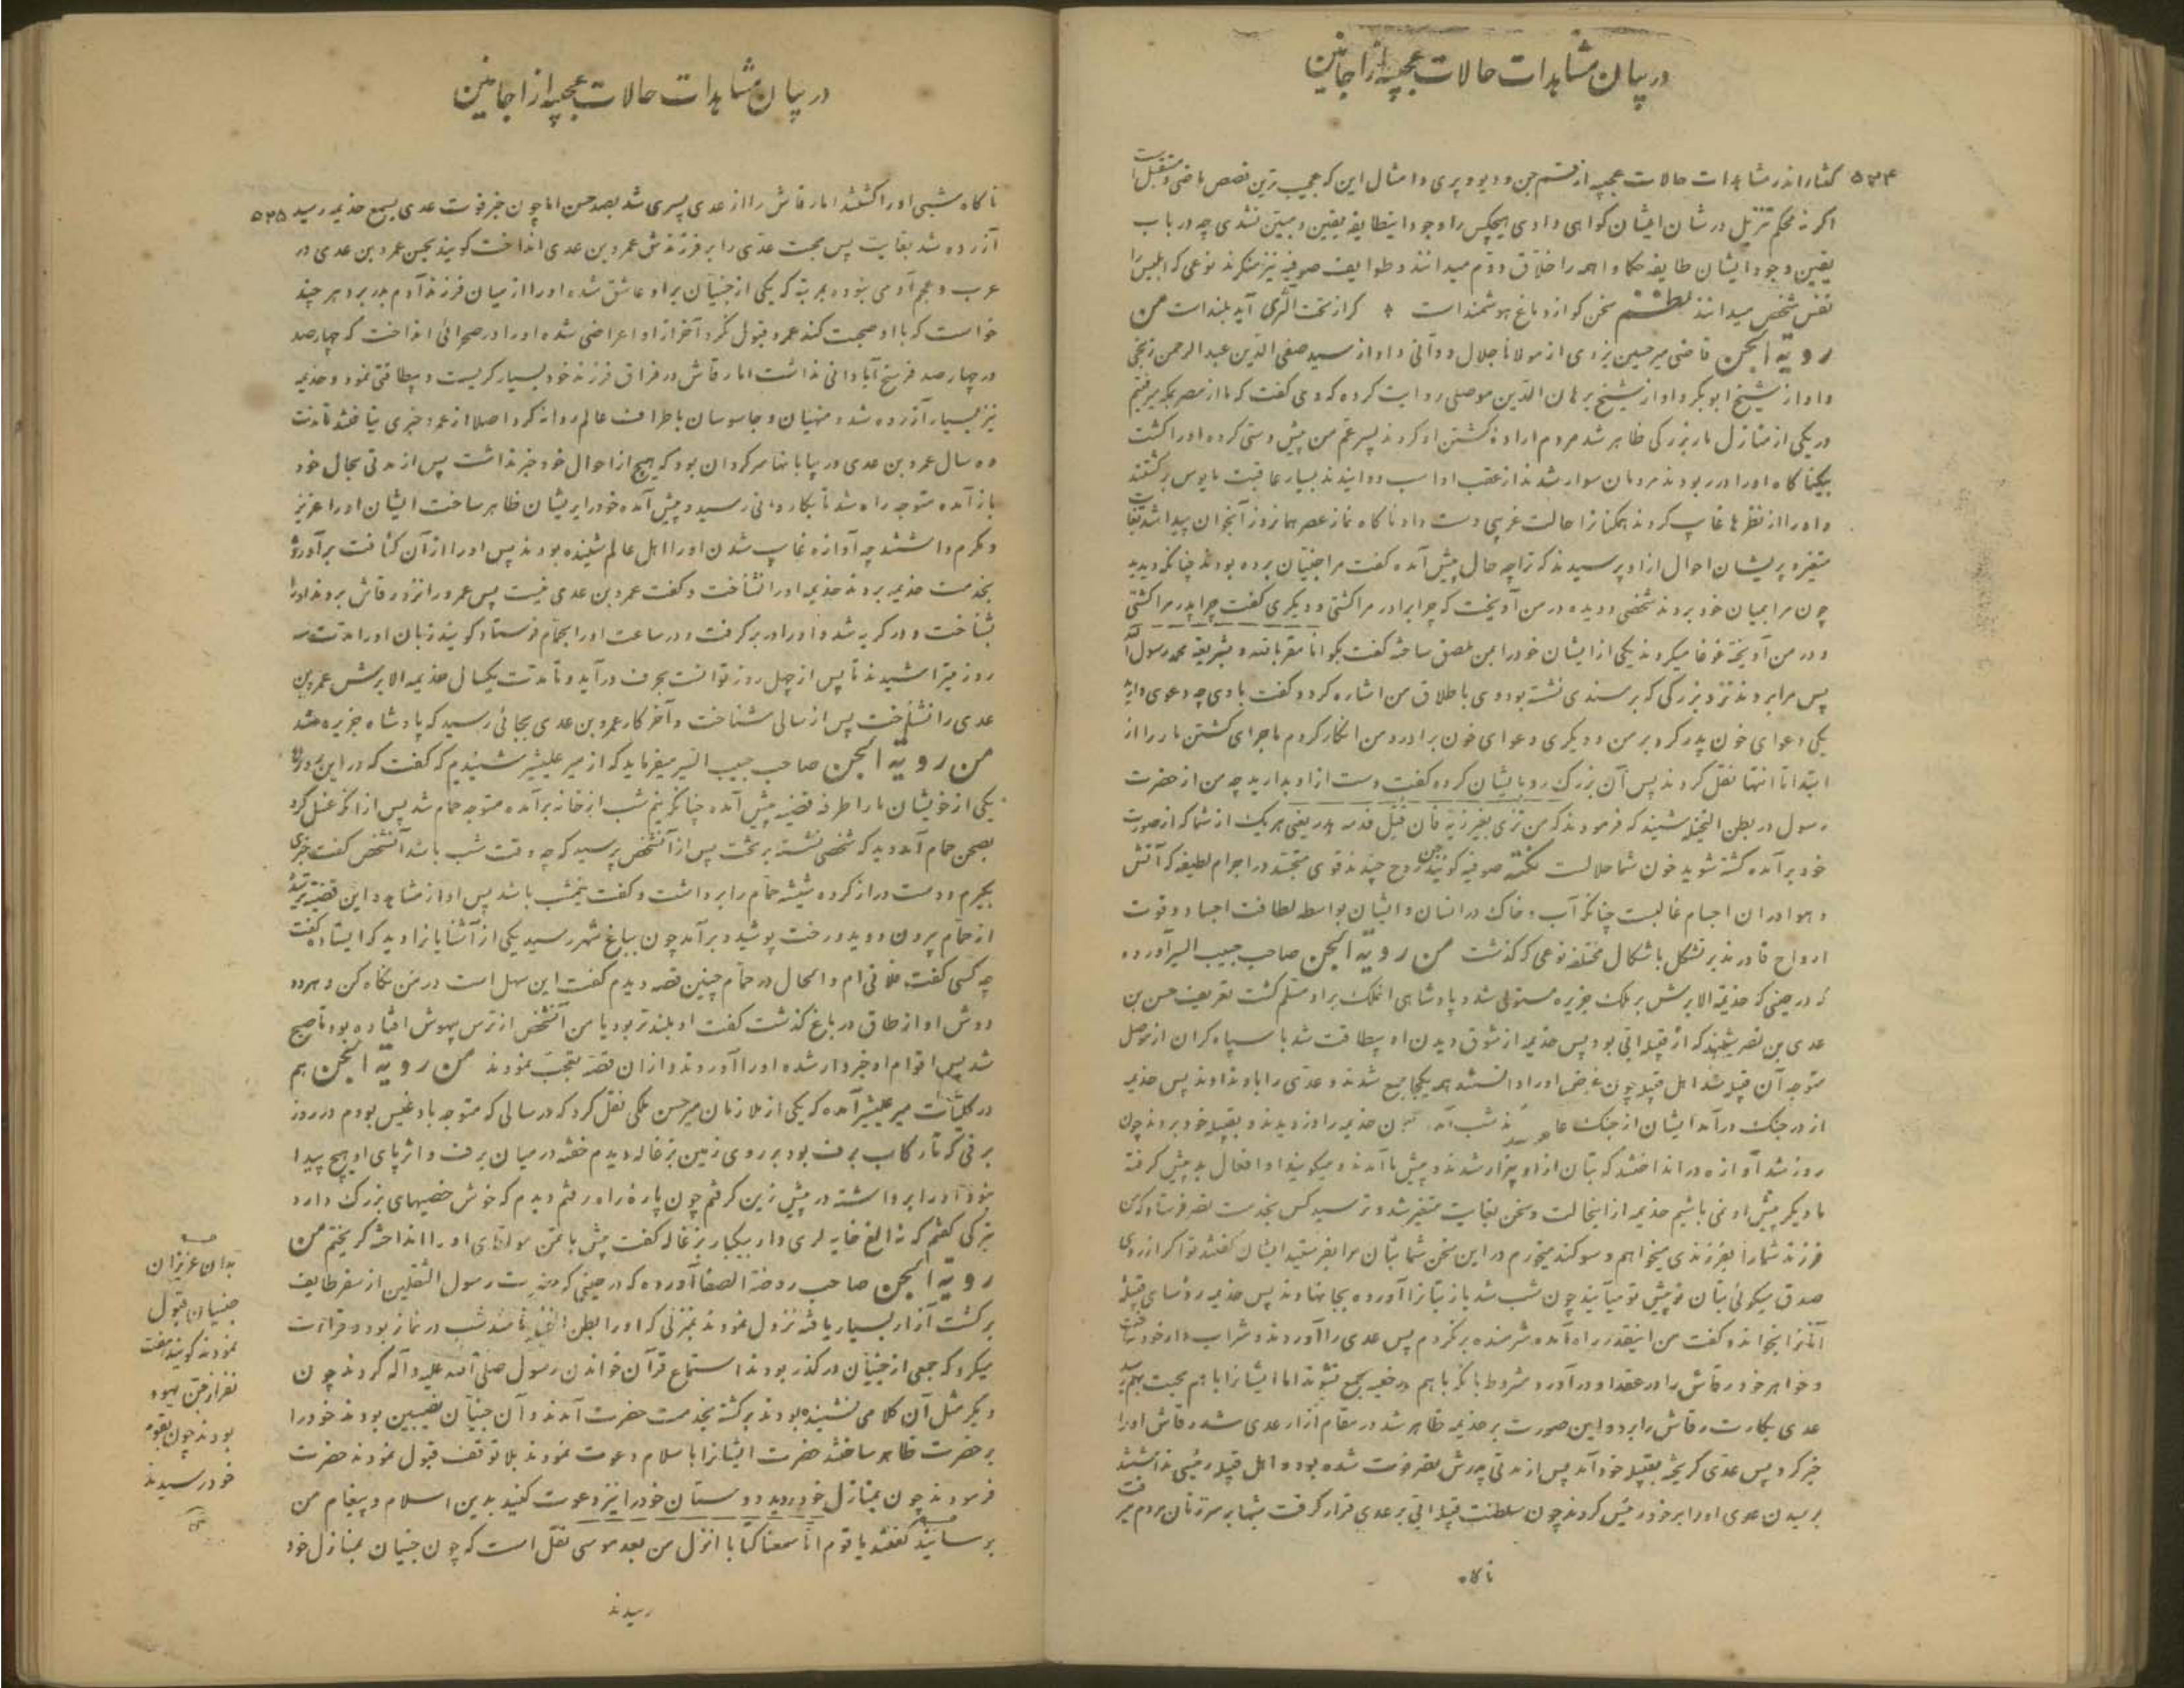 در بیان مشاهدات حالات عجیبه از اجانین
۵۳۴ گفتار اندر مشاهدات حالات عجیبه از قسم جن و دیو و پری و امثال این که عجیب ترین قصص ماضی و مستقبل است
اگر نه محکم تنزیل در شان ایشان گواهی دادی هیچکس را وجود اینطایفه یقین و مبین نشدی چه در باب
یقین وجود ایشان طایفه حکما و اهمه را خلاق دوم میدانند و طوایف صوفیه نیز منکرند نوعی که ابلیس را
نفس شخص میدانند نظم سخن کو از دماغ هوشمند است گر از تحت الثری آید بلند است من
رویة الجن قاضی میرحسین یزدی از مولانا جلال دوانی و او از سید صفی الدین عبد الرحمن
و او از شیخ ابوبکر و او از شیخ برهان الدین موصلی روایت کرده که وی گفت که ما از مصر بمکه میرفتیم
در یکی از منازل مار بزرگی ظاهر شد مردم اراده کشتن او کردند پسر عم من پیش دستی کرده او را کشت
بیکناگاه او را در ربودند مردمان سوار شدند از عقب او اسب دوانیدند بسیار عاقبت مایوس برگشتند
و او را از نظرها غایب کردند همگنانرا حالت غریبی دست داد ناگاه نماز عصر همانروز آنجوان پیدا شد بغایت
متغیر و پریشان احوال از او پرسیدند که ترا چه حال پیش آمده گفت مرا جنیان برده بودند چنانکه دیدید
چون مرا بمیان خود بردند شخصی دویده در من آویخت که چرا برادر مرا کشتی و دیگری گفت چرا پدر مرا کشتی
و در من آویخته غوغا میکردند یکی از ایشان خود را بمن ملصق ساخته گفت بگو انا مقر بالله و بشریعة محمد رسول الله
پس مرا بردند نزد بزرگی که بر مسندی نشسته بود وی باطلاق من اشاره کرد و گفت با وی چه دعوی دارید
یکی دعوای خون پدر کرد بر من و دیگری دعوای خون برادر و من انکار کردم ماجرای کشتن مار را از
ابتدا تا انتها نقل کردند پس آن بزرگ رو بایشان کرده گفت دست از او بدارید چه من از حضرت
رسول در بطن النخیله شنیدم که فرمودند که من تزی بغیر زیه فان قتل فدمه هدر یعنی هر یک از شما که از صورت
خود برآمده کشته شوید خون شما حلالست نکته صوفیه گویند جن روح چندند قوی متجسد در اجرام لطیفه که آتش
و هوا در آن اجسام غالبست چنانکه آب و خاک در انسان و ایشان بواسطه لطافت اجساد و قوت
ارواح قادرند بر تشکل باشکال مختلفه نوعی که گذشت من رویة الجن صاحب حبیب السیر آورده
که در حینی که جذیمة الابرش بر ملک جزیره مستولی شد و پادشاهی آنملک بر او مسلم گشت تعریف حسن بن
عدی بن نصر شنید که از قبیله ابی بود پس جذیمه از شوق دیدن او بیطاقت شد با سپاه گران از موصل
متوجه آن قبیله شد اهل قبیله چون غرض او را دانستند همه یکجا جمع شدند و عدی را باو ندادند پس جذیمه
از در جنگ درآمد ایشان از جنگ شب بتان جذیمه را دزدیدند و بقبیله خود بردند چون
روز شد آوازه در انداختند که بتان از او بیزار شدند و پیش ما آمدند و میگویند او افعال بد پیش گرفته
ما دیگر پیش او نمی باشیم جذیمه از اینحالت و سخن بغایت متغیر شد و ترسید کس بخدمت نصر فرستاد که من
فرزند شما را بفرزندی میخواهم و سوگند میخورم در این سخن شما بتان مرا بفرستید ایشان گفتند تو اگر از روی
صدق میگوئی بتان خویش تو میآیند چون شب شد باز بتانرا آورده بجا نهادند پس جذیمه رؤسای قبیله
آنانرا بخواند و گفت من اینقدر راه آمده شرمنده برنگردم پس عدی را آوردند و شراب دار خود ساخت
و خواهر خود رقاش را در عقد او درآورد مشروط بآنکه با هم در خفیه جمع نشوند اما ایشانرا با هم محبت بهم رسید
عدی بکارت رقاش را برد و این صورت بر جذیمه ظاهر شد در مقام آزار عدی شد رقاش او را
خبر کرد پس عدی گریخته بقبیله خود آمد پس از مدتی پدرش نصر فوت شده بود و اهل قبیله رئیسی نداشتند
برسیدن عدی او را بر خود رئیس کردند چون سلطنت قبیله ابی بر عدی قرار گرفت شبها بر سر زنان مردم میرفت
ناگاه
در بیان مشاهدات حالات عجیبه از اجانین
ناگاه شبی او را کشتند اما رقاش را از عدی پسری شد بصد حسن اما چون خبر فوت عدی بسمع جذیمه رسید ۵۳۵
آزرده شد بغایت پس محبت عدی را بر فرزندش عمرو بن عدی انداخت گویند بحسن عمرو بن عدی در
عرب و عجم آدمی نبوده بمرتبه که یکی از جنیان بر او عاشق شده او را از میان فرزند آدم بدر برد هر چند
خواست که با او صحبت کند عمرو قبول نکرد آخر از او اعراضی شده او را در صحرائی انداخت که چهارصد
در چهارصد فرسخ آبادانی نداشت اما رقاش در فراق فرزند خود بسیار گریست و بیطاقتی نمود و جذیمه
نیز بسیار آزرده شد و منهیان و جاسوسان باطراف عالم روانه کرد اصلا از عمرو خبری نیافتند تا مدت
ده سال عمرو بن عدی در بیابانها سرگردان بود که هیچ از احوال خود خبر نداشت پس از مدتی بحال خود
باز آمده متوجه راه شد تا بکاروانی رسید و پیش آمده خود را بر ایشان ظاهر ساخت ایشان او را عزیز
و مکرم داشتند چه آوازه غایب شدن او را اهل عالم شنیده بودند پس او را از آن کثافت برآورده
بخدمت جذیمه بردند جذیمه او را نشناخت و گفت عمرو بن عدی نیست پس عمرو را نزد رقاش بردند او را
بشناخت و در گریه شد و او را در بر گرفت و در ساعت او را بحمام فرستاد گویند زبان او را مدت سه
روز میتراشیدند تا پس از چهل روز توانست بحرف درآید و تا مدت یکسال جذیمة الابرش عمرو بن
عدی را نشناخت پس از سالی شناخت و آخر کار عمرو بن عدی بجائی رسید که پادشاه جزیره شد
من رویة الجن صاحب حبیب السیر میفرماید که از میر علیشیر شنیدم که گفت که در این روزها
یکی از خویشان ما را طرفه قضیه پیش آمده چنانکه نیم شب از خانه برآمده متوجه حمام شد پس از آنکه غسل کرد
بصحن حمام آمد دید که شخصی نشسته بر تخت پس از آنشخص پرسید که چه وقت شب باشد آنشخص گفت خبری
بگیرم و دست دراز کرده شیشه حمام را برداشت و گفت نیمشب باشد پس او از مشاهده این قضیه ترسیده
از حمام بیرون دوید و رخت پوشید و برآمد چون بباغ شهر رسید یکی از آشنایانرا دید که ایستاده گفت
چه کسی گفت فلانی ام و الحال در حمام چنین قصه دیدم گفت این سهل است در من نگاه کن و هر دو
دوش او از طاق در باغ گذشت گفت او بلندتر بود یا من آنشخص از ترس بیهوش افتاده بود تا صبح
شد پس اقوام او خبردار شده او را آوردند و از آن قصه تعجب نمودند من رویة الجن هم
در کلیات میر علیشیر آمده که یکی از ملازمان میرحسن ملکی نقل کرد که در سالی که متوجه بادغیس بودم در روز
برفی که تا رکاب برف بود بر روی زمین بزغاله دیدم خفته در میان برف و اثر پای او هیچ پیدا
نبود او را برداشته در پیش زین گرفتم چون پاره راه رفتم دیدم که خوش خصیهای بزرگ دارد
بترکی گفتم که نه الغ خایه لری وار بیکبار بزغاله گفت او را انداخته گریختم من
رویة الجن صاحب روضة الصفا آورده که در حینی که حضرت رسول الثقلین از سفر طایف
برگشت آزار بسیار یافته نزول نمودند بمنزلی که او را بطن النخیله نامند شب در نماز بود و قراءت
میکرد که جمعی از جنیان در گذر بودند استماع قرآن خواندن رسول صلی الله علیه و آله کردند چون
دیگر مثل آن کلامی نشنیده بودند برگشته بخدمت حضرت آمدند و آن جنیان نصیبین بودند خود را
بر حضرت ظاهر ساختند حضرت ایشانرا باسلام دعوت نمودند بلا توقف قبول نمودند حضرت
فرمودند چون بمنازل خود روید دوستان خود را نیز دعوت کنید بدین اسلام و پیغام من
برسانید گفتند یا قوم انا سمعنا کتابا انزل من بعد موسی نقل است که چون جنیان بمنازل خود
رسیدند
بدان عزیزان
جنیان قبول
نمودند گویند هفت
نفر از جن یهود
بودند چون بقوم
خود رسیدند